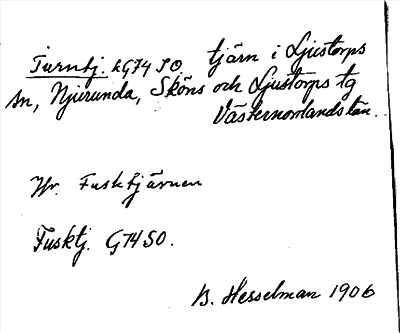 Turntj. kG74 SO. tjärn i Ljustorps
sn, Njurunda, Sköns och Ljustorps tg
Västernorrlands län.
Jfr. Fusktjärnen
Fusktj. G74SO.
B. Hesselman 1906